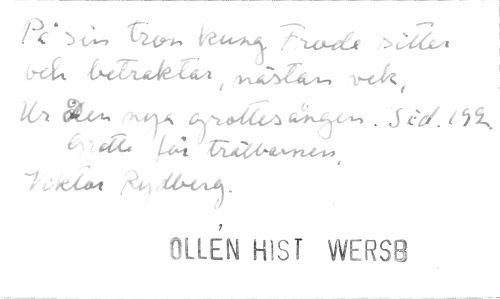 På sin tron kung Frode sitter
och betraktar, nästan vek,
Ur Den nya grottesången. Sid. 192
Grotte får trälbarnen,
Viktor Rydberg.
OLLÉN HIST WERSB